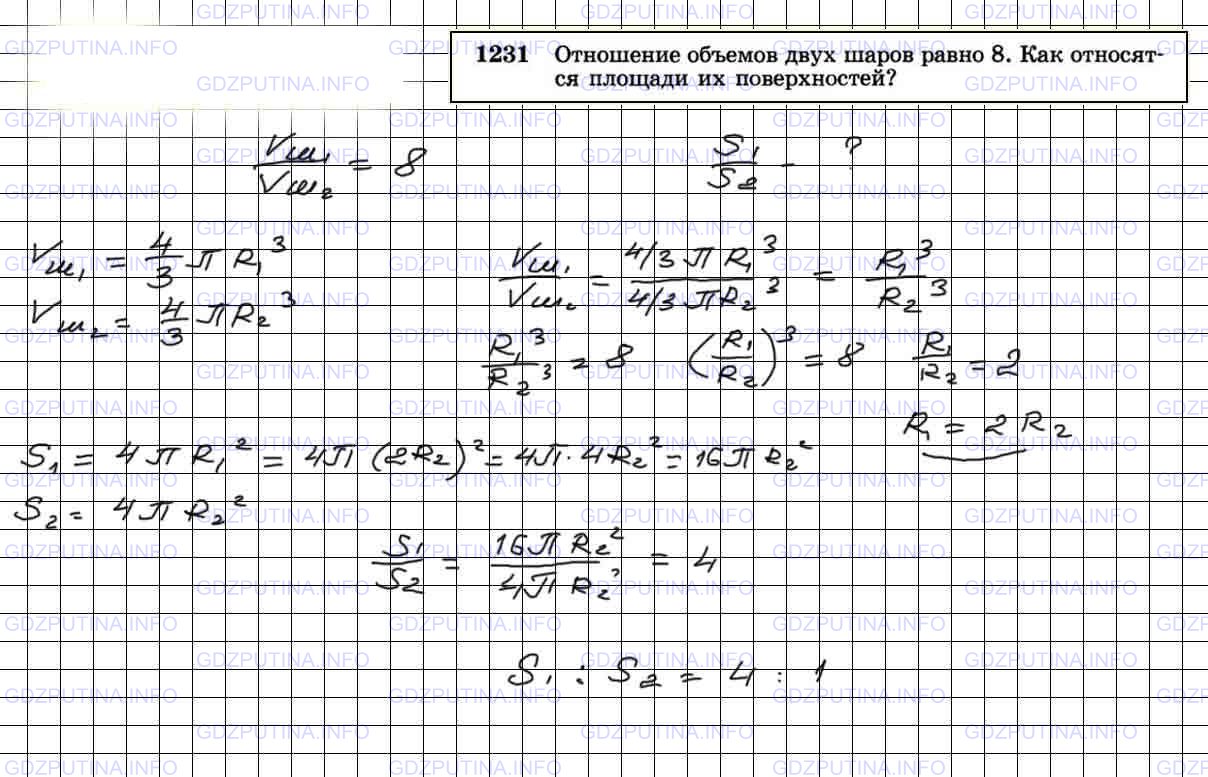 1231 Отношение объемов двух шаров равно 8. Как относят-
ся площади их поверхностей?
Vш₁/Vш₂ = 8     S₁/S₂ - ?
Vш₁ = 4/3 π R₁³     Vш₁/Vш₂ = (4/3 π R₁³)/(4/3 π R₂³) = R₁³/R₂³
Vш₂ = 4/3 π R₂³
R₁³/R₂³ = 8   (R₁/R₂)³ = 8   R₁/R₂ = 2
R₁ = 2 R₂
S₁ = 4 π R₁² = 4π (2R₂)² = 4π · 4R₂² = 16π R₂²
S₂ = 4 π R₂²
S₁/S₂ = 16 π R₂²/4 π R₂² = 4
S₁ : S₂ = 4 : 1
GDZPUTINA.INFO